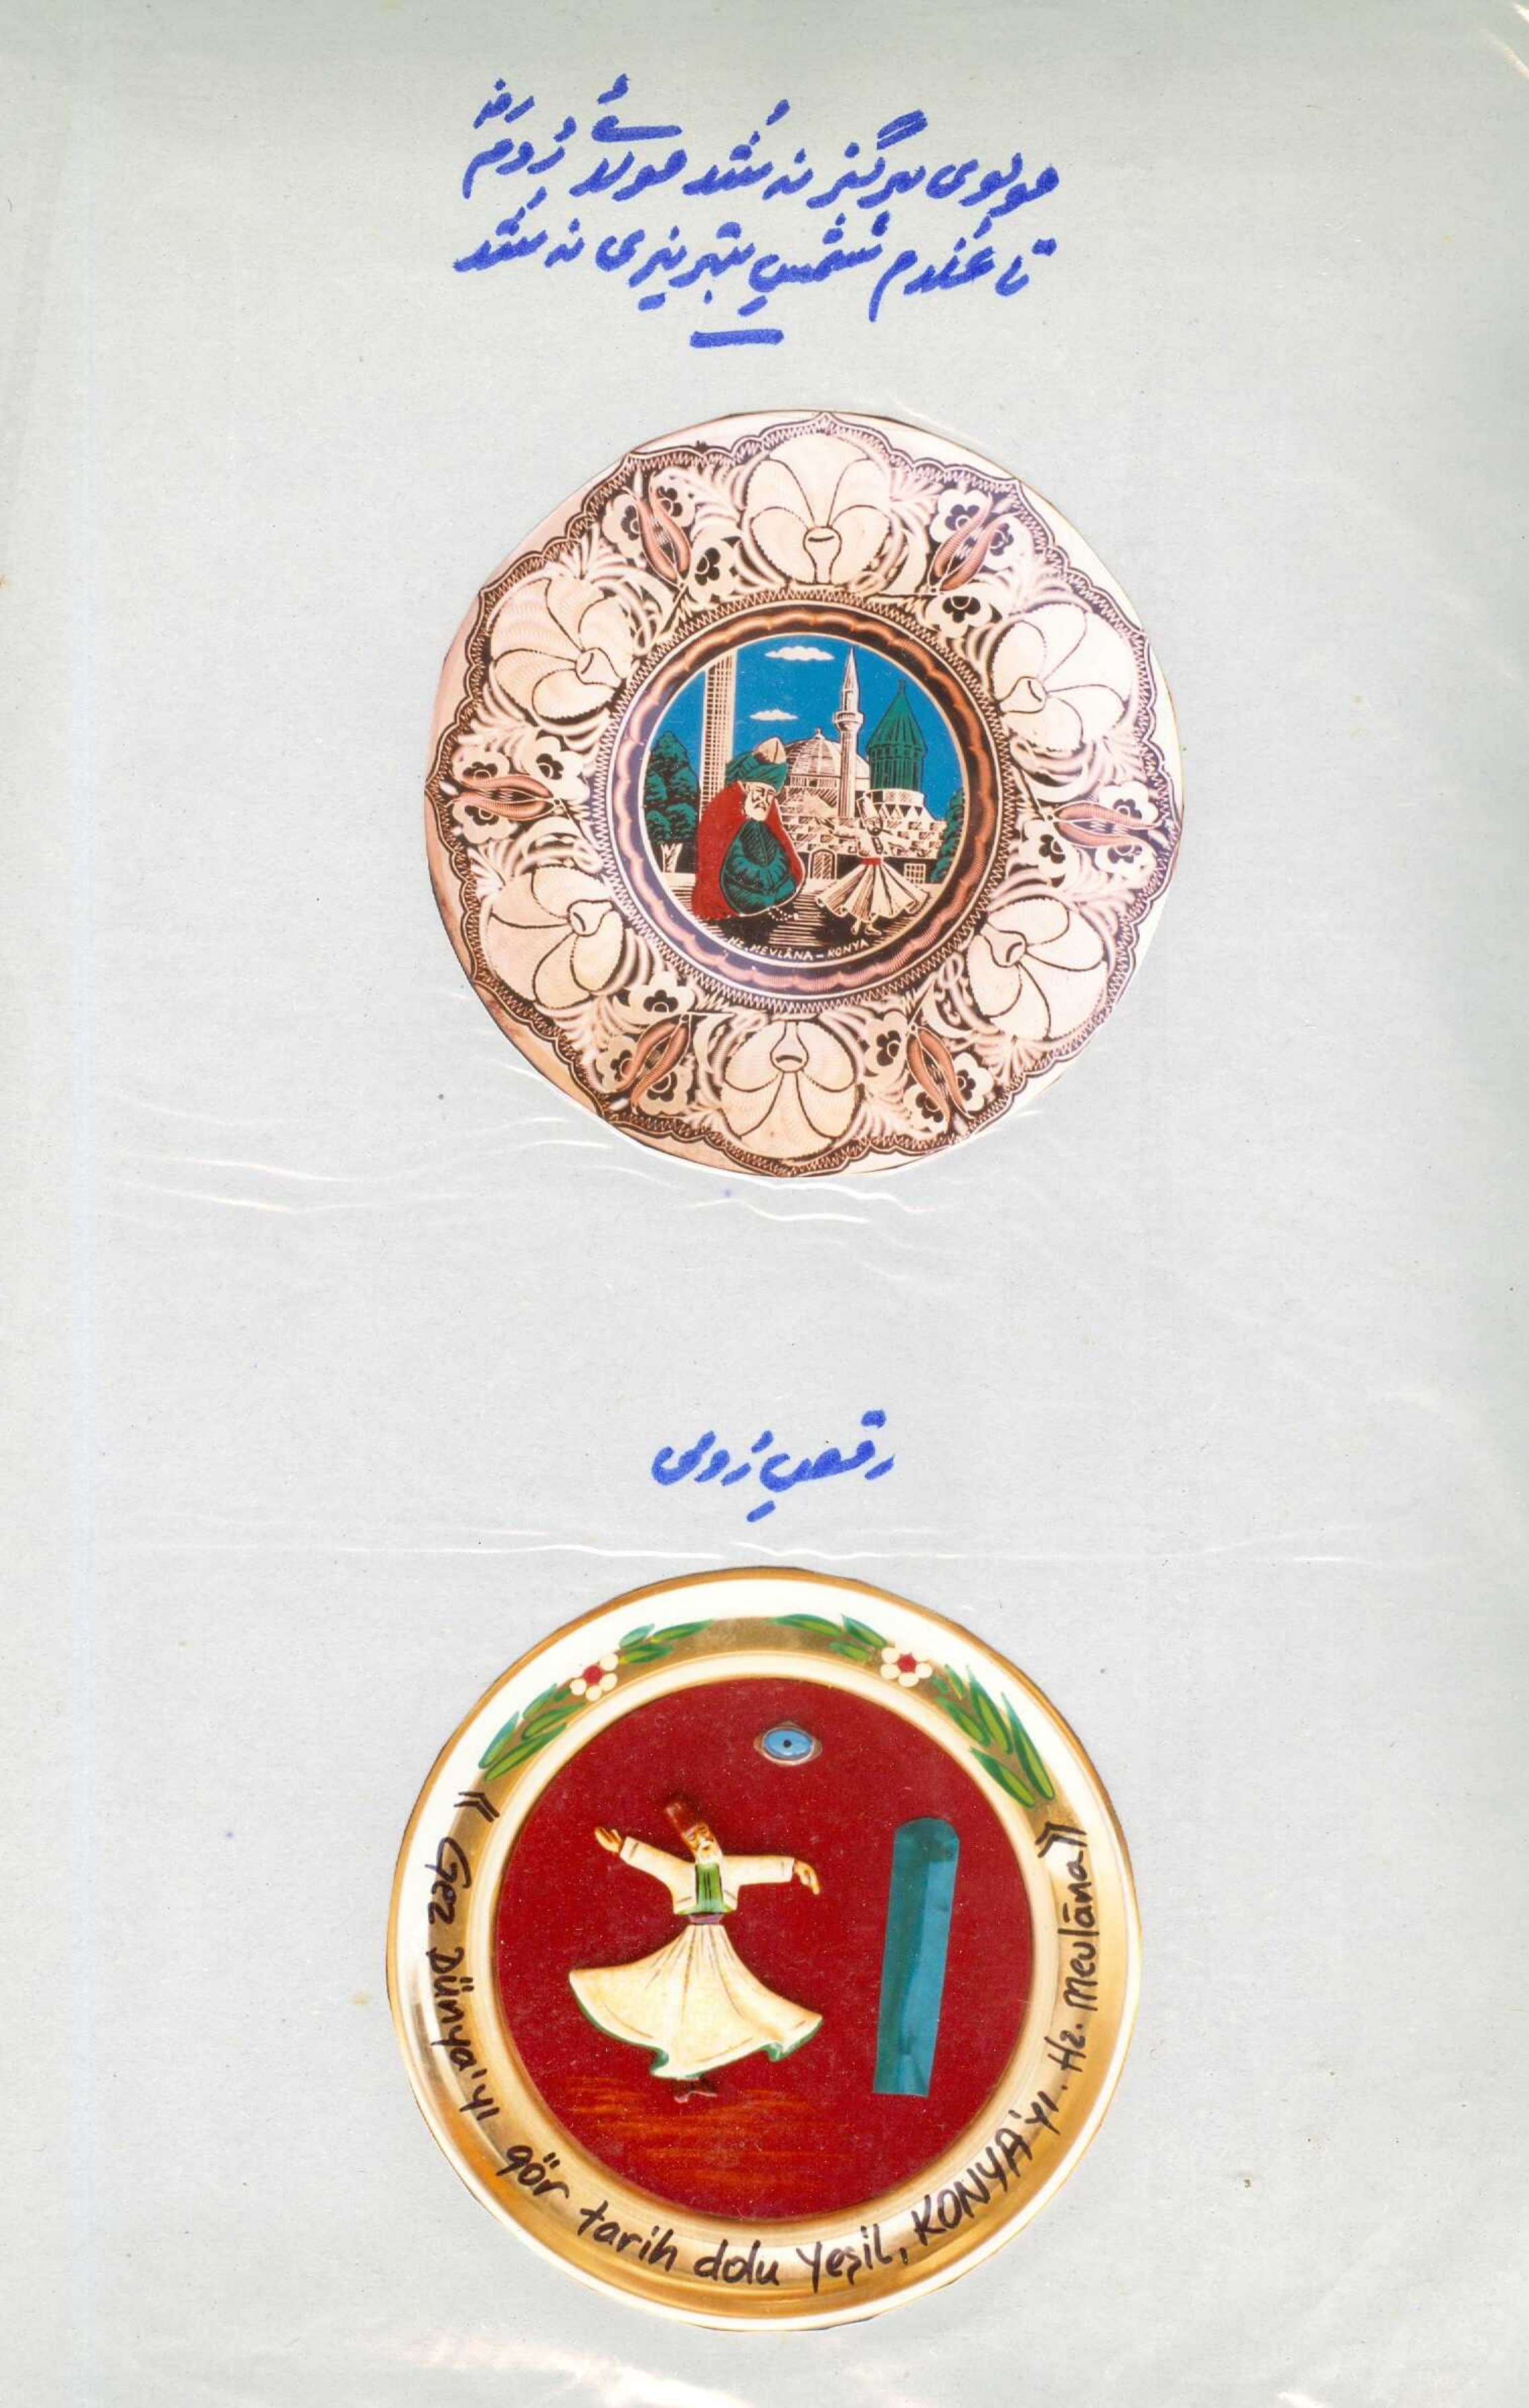 مولوی ہرگز نہ شُد مولائے رُومؒ
تا غلام شمسِ تبریزی نہ شُد
HZ. MEVLÂNA - KONYA
رقصِ رُومی
《 Gez Dünya'yı gör tarih dolu Yeşil, KONYA'yı. Hz. Mevlâna》